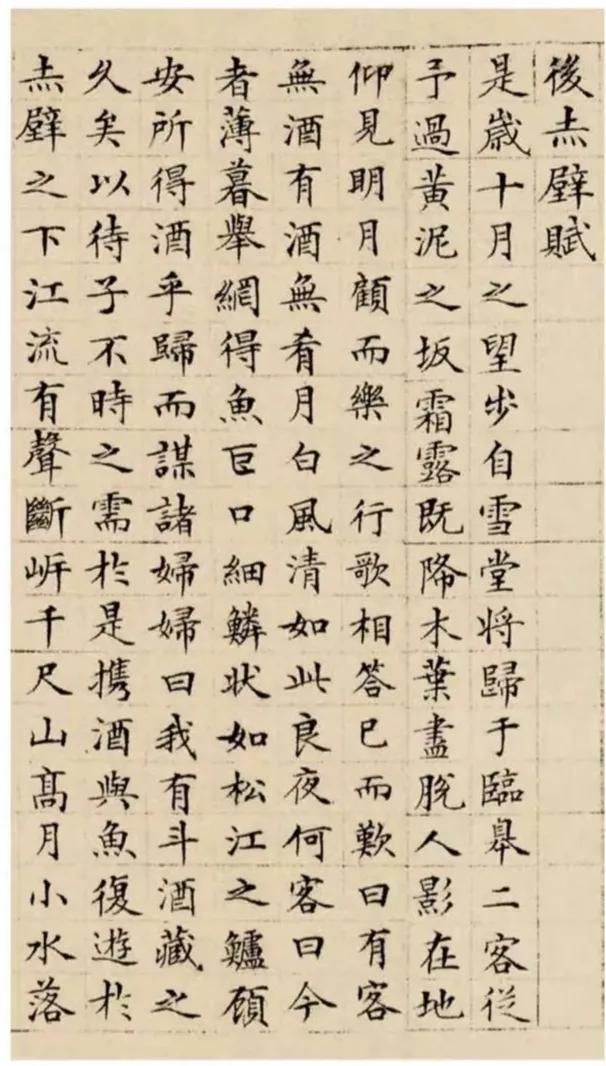 後赤壁賦
是歲十月之望步自雪堂將歸于臨皋二客從
予過黃泥之坂霜露既降木葉盡脫人影在地
仰見明月顧而樂之行歌相答已而歎曰有客
無酒有酒無肴月白風清如此良夜何客曰今
者薄暮舉網得魚巨口細鱗狀如松江之鱸顧
安所得酒乎歸而謀諸婦婦曰我有斗酒藏之
久矣以待子不時之需於是携酒與魚復遊於
赤壁之下江流有聲斷岸千尺山髙月小水落